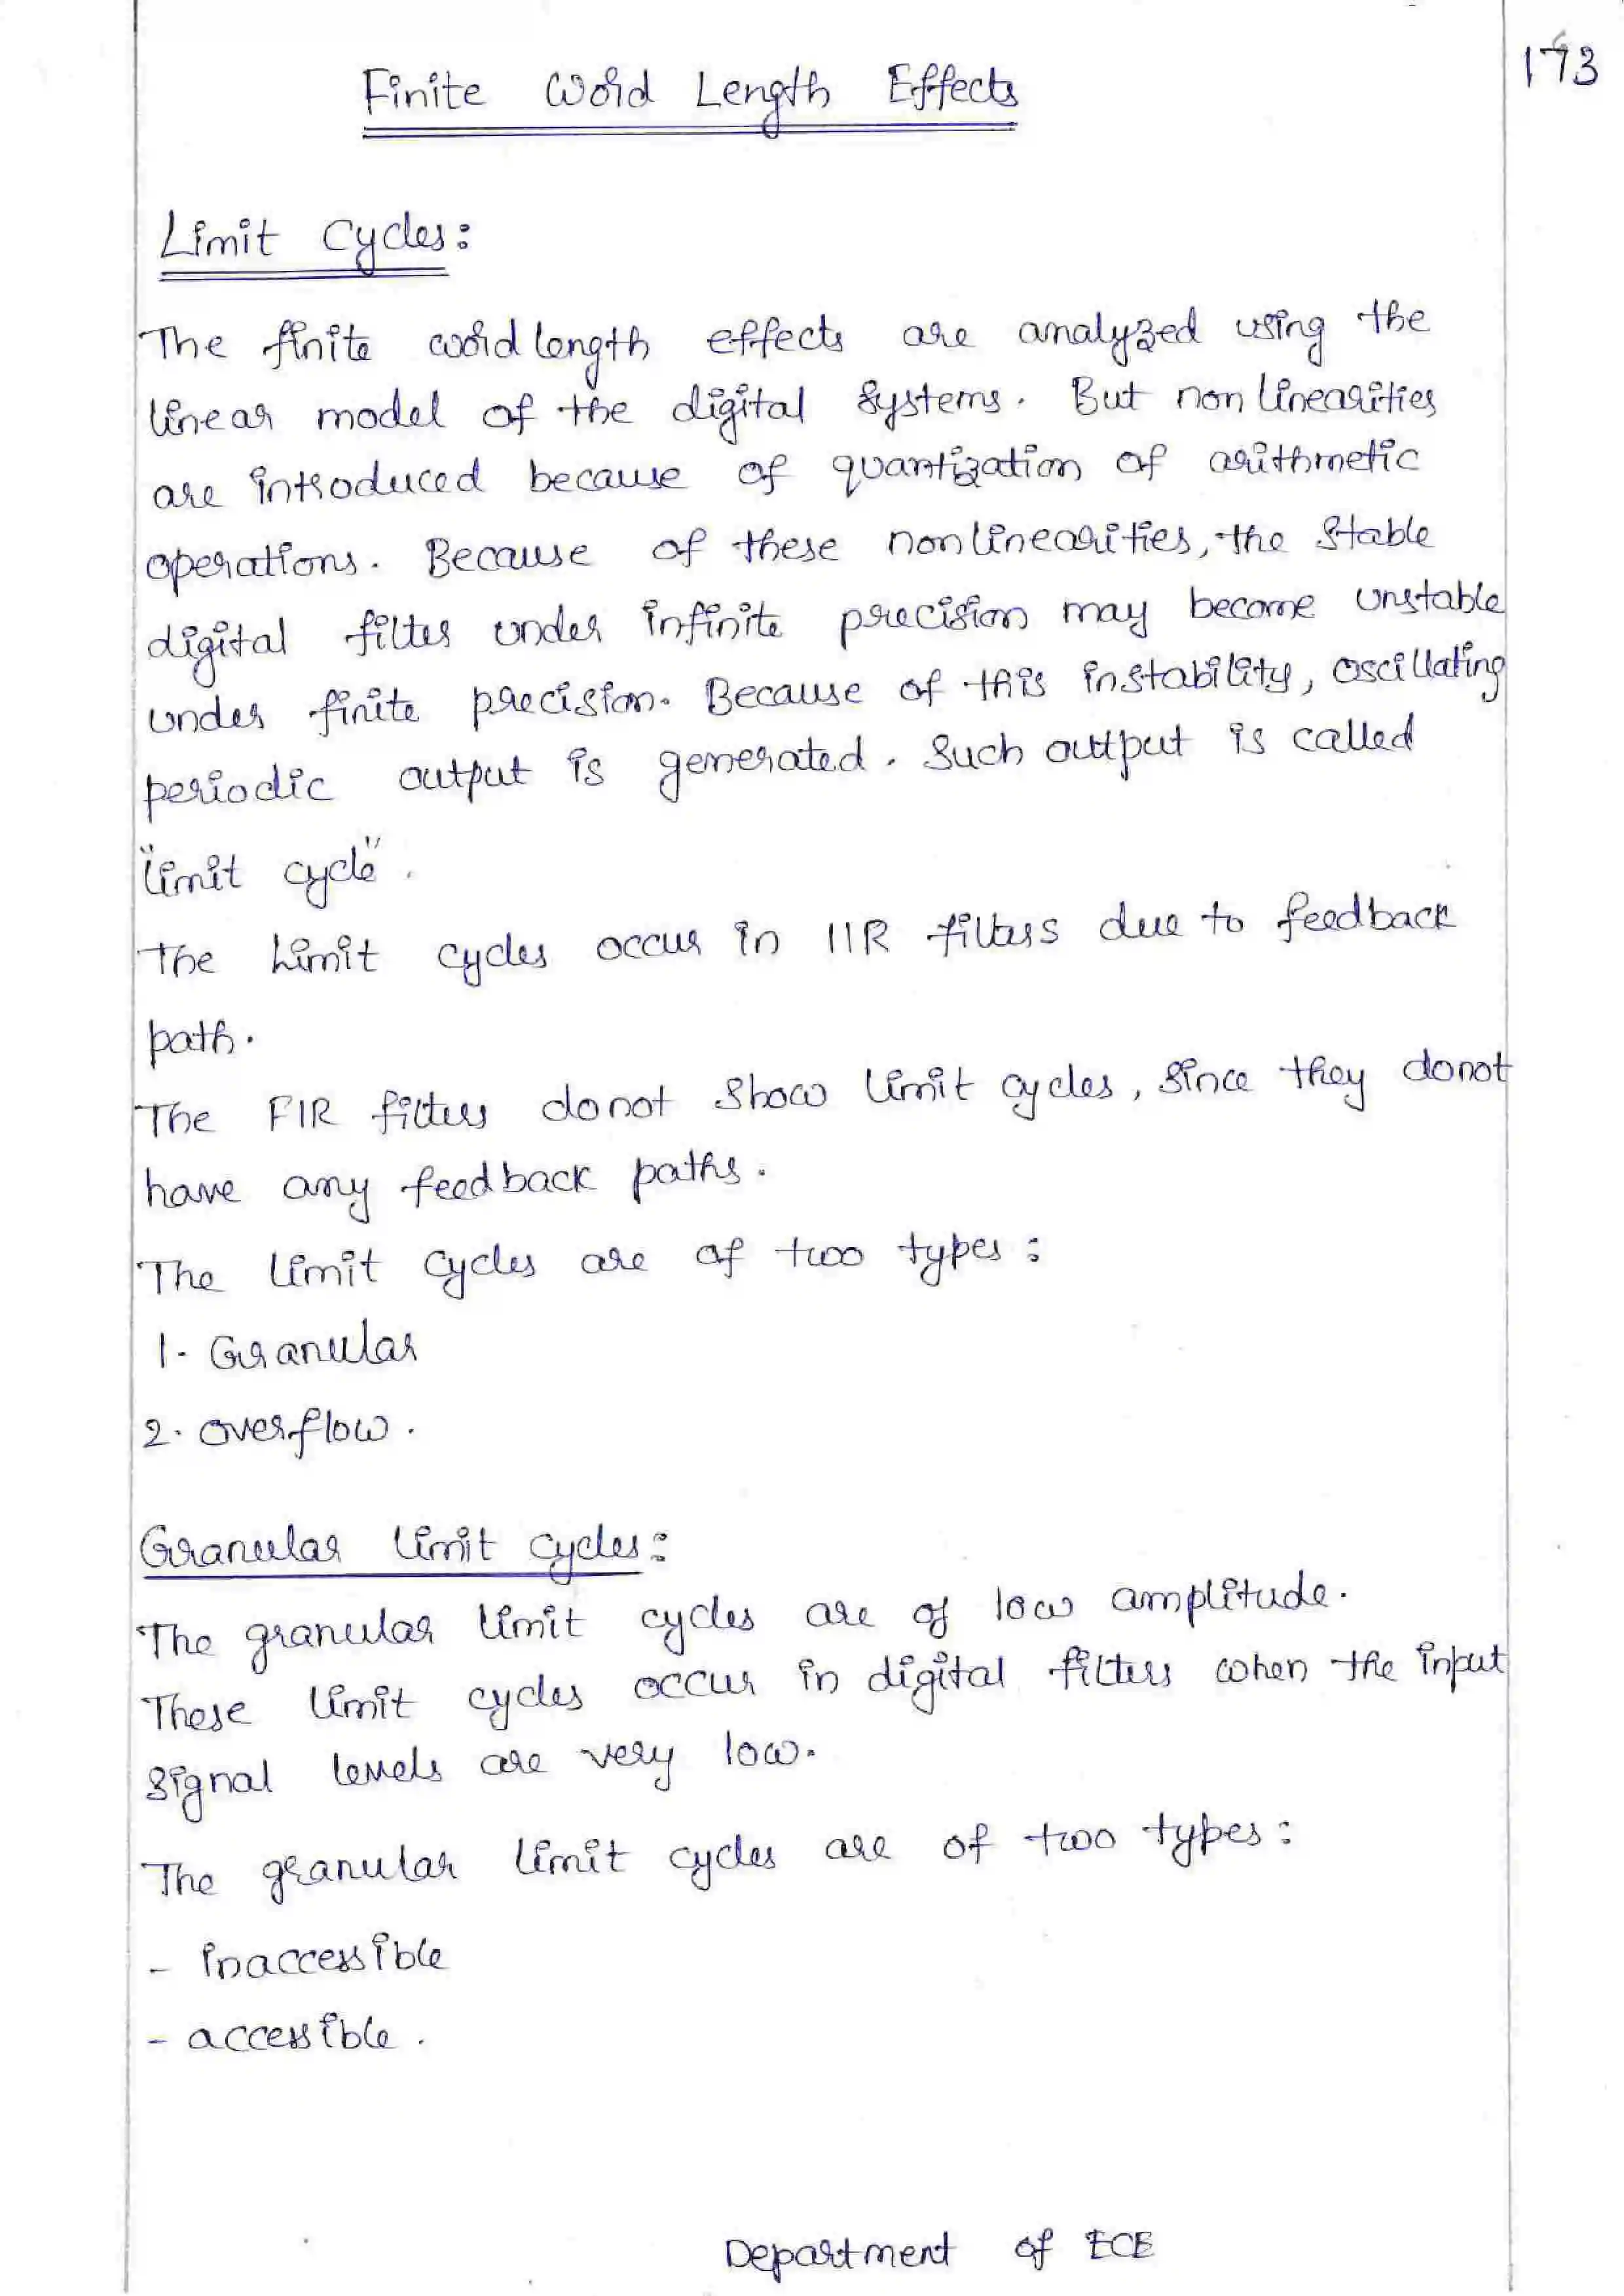 173
Finite Word Length Effects
Limit Cycles:
The finite word length effects are analyzed using the
linear model of the digital systems. But non linearities
are introduced because of quantization of arithmetic
operations. Because of these non linearities, the stable
digital filter under infinite precision may become unstable
under finite precision. Because of this instability, oscillating
periodic output is generated. Such output is called
"limit cycle".
The Limit cycles occur in IIR filters due to feedback
path.
The FIR filters donot show limit cycles, since they donot
have any feedback paths.
The limit cycles are of two types:
1. Granular
2. overflow.
Granular limit cycles:
The granular limit cycles are of low amplitude.
These limit cycles occur in digital filters when the input
signal levels are very low.
The granular limit cycles are of two types:
- inaccessible
- accessible.
Department of ECE